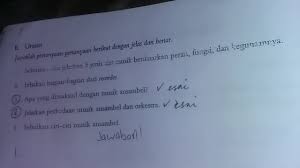 B. Uraian
Jawablah pertanyaan-pertanyaan berikut dengan jelas dan benar.
dan jelaskan jenis musik berdasarkan peran, fungsi, dan kegunaannya.
Jelaskan bagian-bagian dari
3 Apa yang dimaksud dengan musik ansambel? ✓ esai
4 Jelaskan perbedaan musik ansambel dan orkestra. ✓ esai
5 Sebutkan ciri-ciri musik ansambel.
Jawaban!
1.